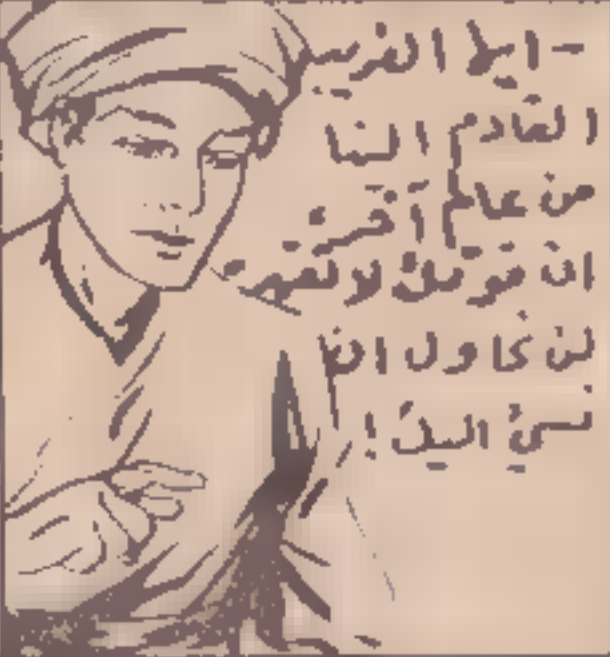 - ايها الغريب
القادم الينا
من عالم آخر
ان قوتك لا تقهر
لن نحاول ان
نسئ اليك !